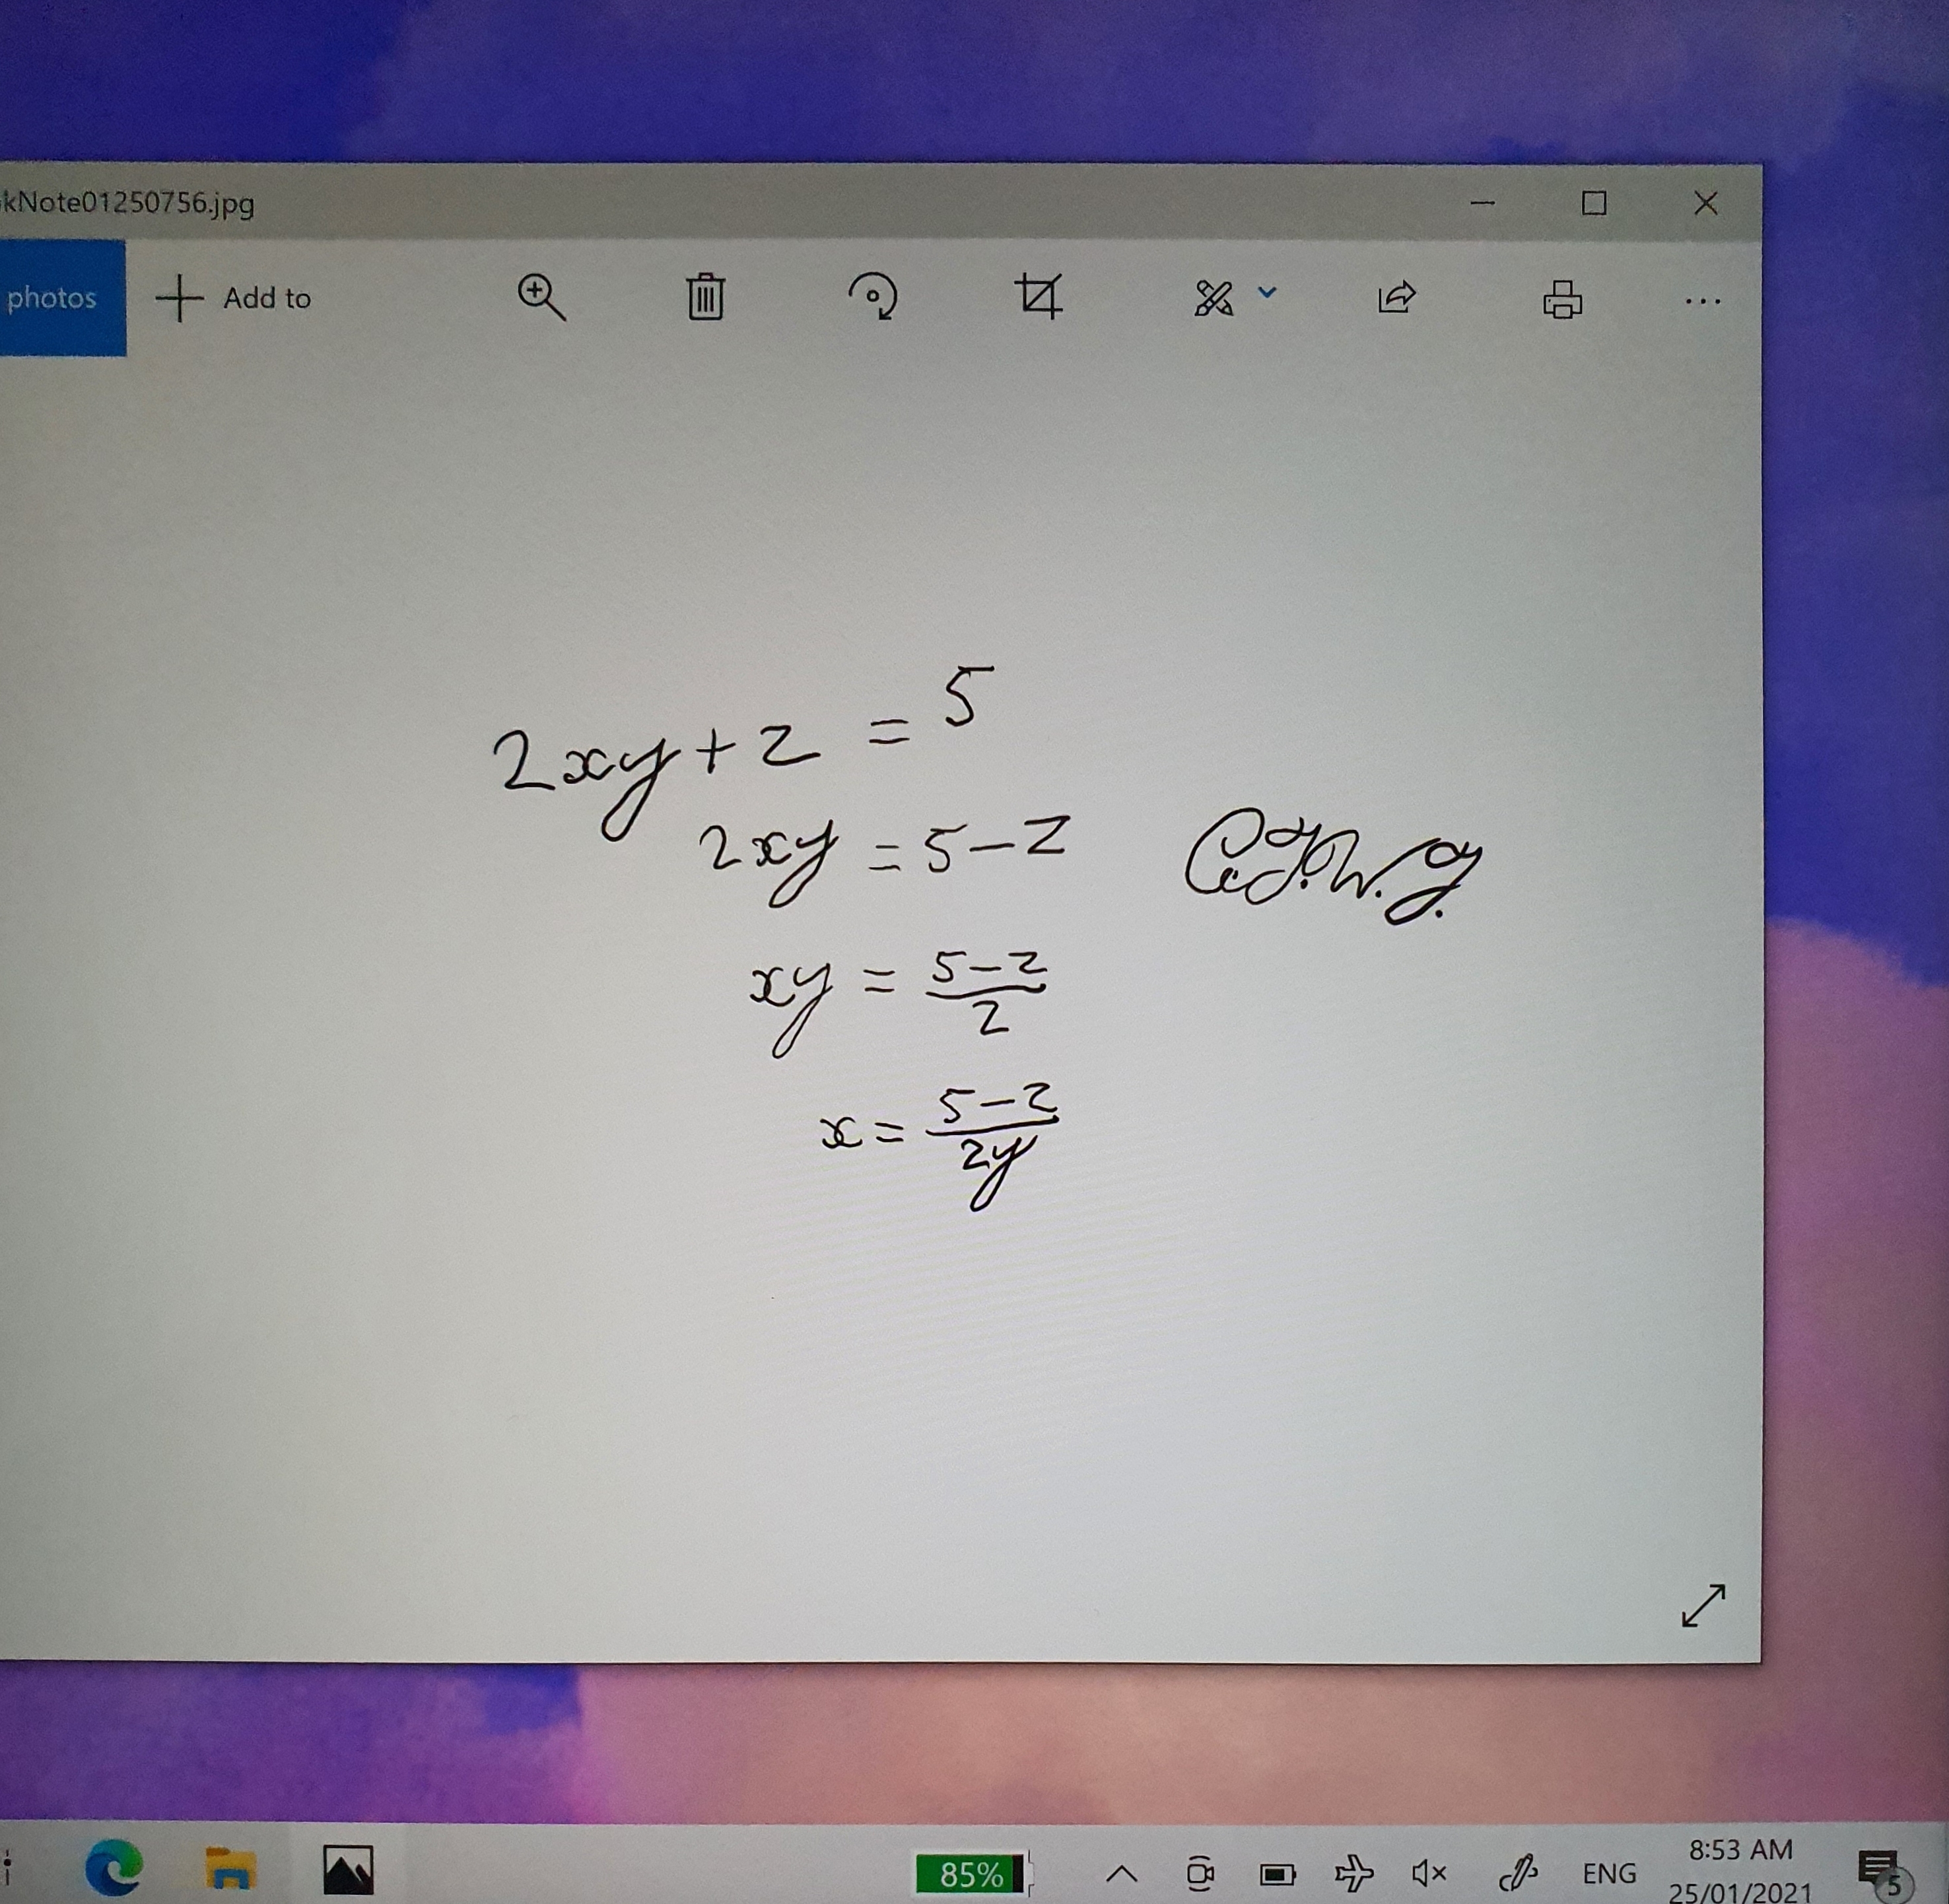 kNote01250756.jpg
photos
Add to
2xy + z = 5
2xy = 5 - z
xy = \frac{5 - z}{2}
x = \frac{5 - z}{2y}
85%
ENG
8:53 AM
25/01/2021
5